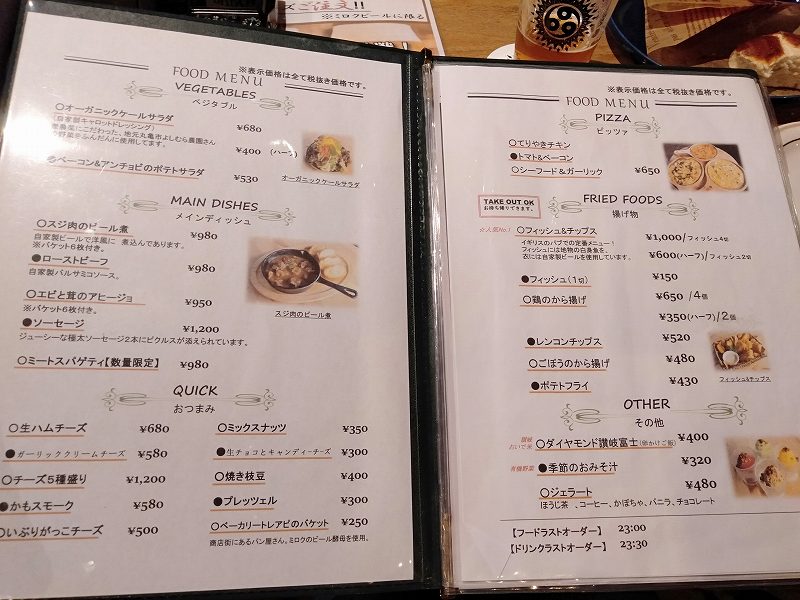 ズご注文!!
※ミロクビールに限る
※表示価格は全て税抜き価格です。
FOOD MENU
VEGETABLES
ベジタブル
〇オーガニックケールサラダ ¥680
(自家製キャロットドレッシング)
農業にこだわった、地元丸亀市よしむら農園さん
野菜をふんだんに使用してます。
¥400 (ハーフ)
●ベーコン&アンチョビのポテトサラダ ¥530
オーガニックケールサラダ
MAIN DISHES
メインディッシュ
〇スジ肉のビール煮 ¥980
自家製ビールで洋風に 煮込んであります。
※バケット6枚付き。
●ローストビーフ ¥980
自家製バルサミコソース。
〇エビと茸のアヒージョ ¥950
※バケット6枚付き。
●ソーセージ ¥1,200
ジューシーな極太ソーセージ2本にピクルスが添えられています。
〇ミートスパゲティ【数量限定】 ¥980
スジ肉のビール煮
QUICK
おつまみ
〇生ハムチーズ ¥680
●ガーリッククリームチーズ ¥580
〇チーズ5種盛り ¥1,200
●かもスモーク ¥580
〇いぶりがっこチーズ ¥500
〇ミックスナッツ ¥350
●生チョコとキャンディーチーズ ¥300
〇焼き枝豆 ¥400
●プレッツェル ¥300
〇ベーカリートレアビのバケット ¥250
商店街にあるパン屋さん。ミロクのビール酵母を使用。
※表示価格は全て税抜き価格です。
FOOD MENU
PIZZA
ピッツァ
〇てりやきチキン
●トマト&ベーコン
〇シーフード&ガーリック ¥650
TAKE OUT OK
お持ち帰りできます。
FRIED FOODS
揚げ物
☆人気No.1
〇フィッシュ&チップス ¥1,000/フィッシュ4切
イギリスのパブでの定番メニュー!
フィッシュには地物の白身魚を、
衣には自家製ビールを使用しています。
¥600(ハーフ)/フィッシュ2切
●フィッシュ(1切) ¥150
〇鶏のから揚げ ¥650 /4個
¥350(ハーフ)/2個
●レンコンチップス ¥520
〇ごぼうのから揚げ ¥480
●ポテトフライ ¥430
フィッシュ&チップス
OTHER
その他
讃岐
おいで米
〇ダイヤモンド讃岐富士(卵かけご飯) ¥400
有機野菜
●季節のおみそ汁 ¥320
〇ジェラート ¥480
ほうじ茶 、コーヒー、かぼちゃ、バニラ、チョコレート
【フードラストオーダー】 23:00
【ドリンクラストオーダー】 23:30